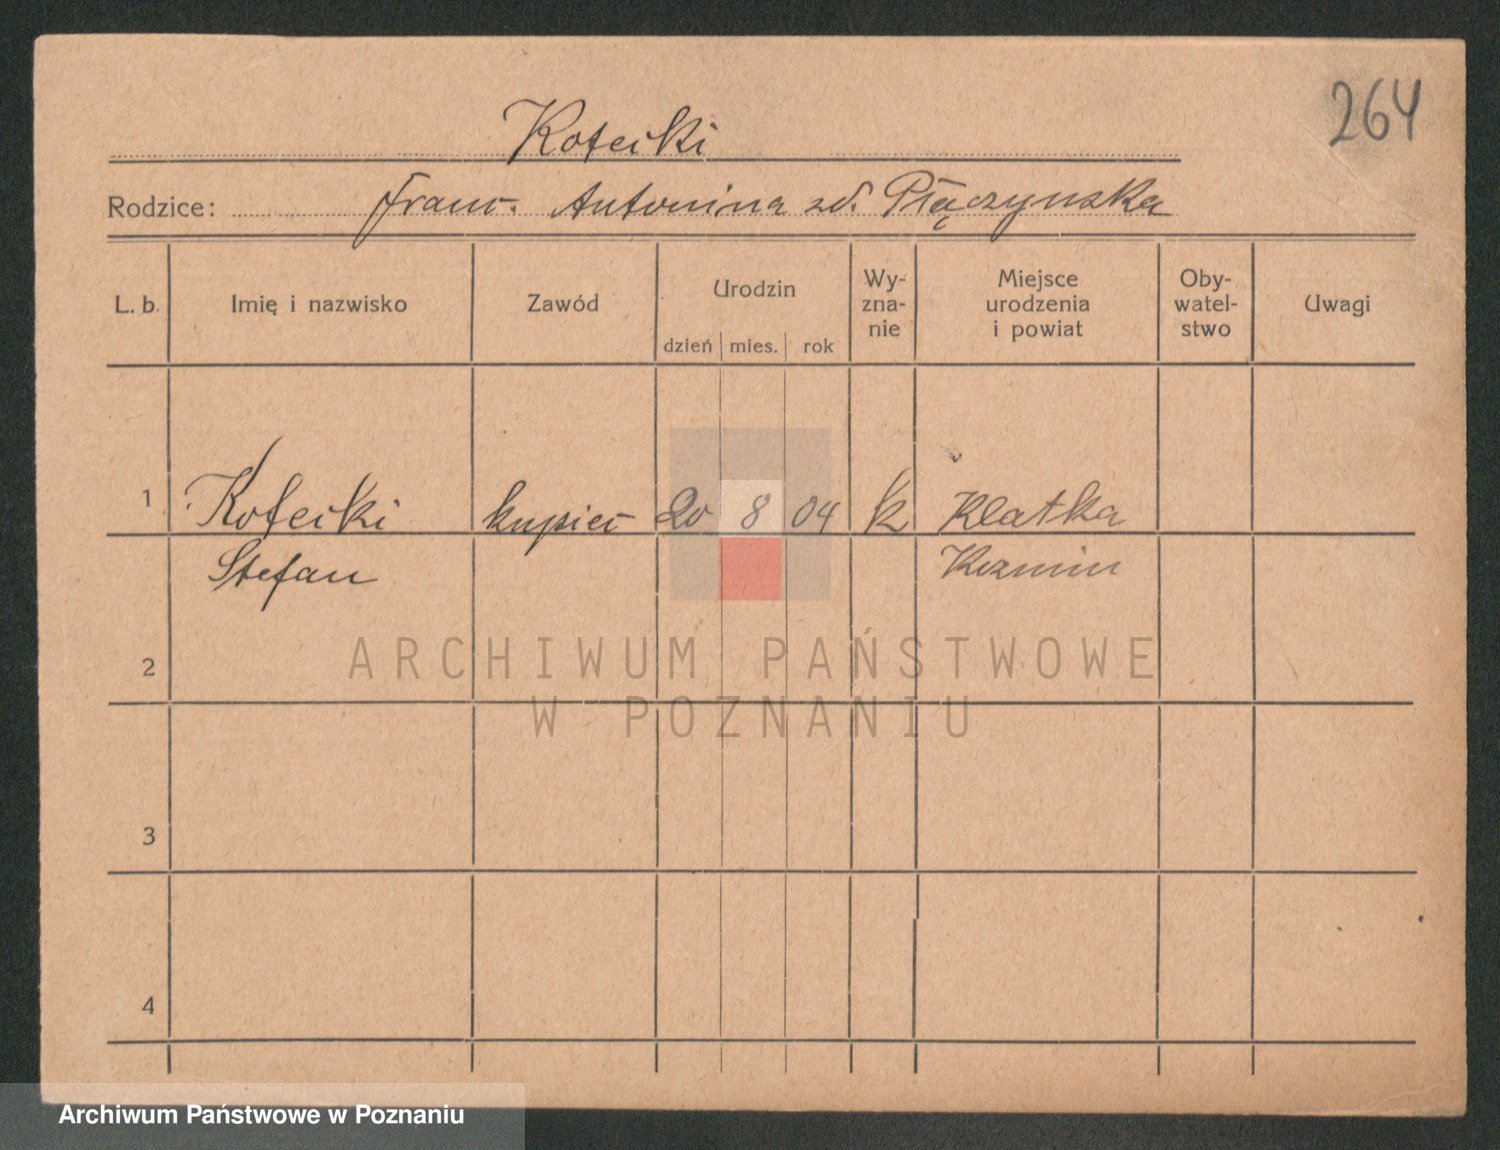 264
Kotecki
Rodzice: Franc. Antonina zd. Płączynska
L. b. Imię i nazwisko Zawód Urodzin dzień mies. rok Wy-zna-nie Miejsce urodzenia i powiat Oby-watel-stwo Uwagi
1 Kotecki kupiec 20 8 04 k Klatka
Stefan Kozmin
2
3
4
ARCHIWUM PAŃSTWOWE
W POZNANIU
Archiwum Państwowe w Poznaniu